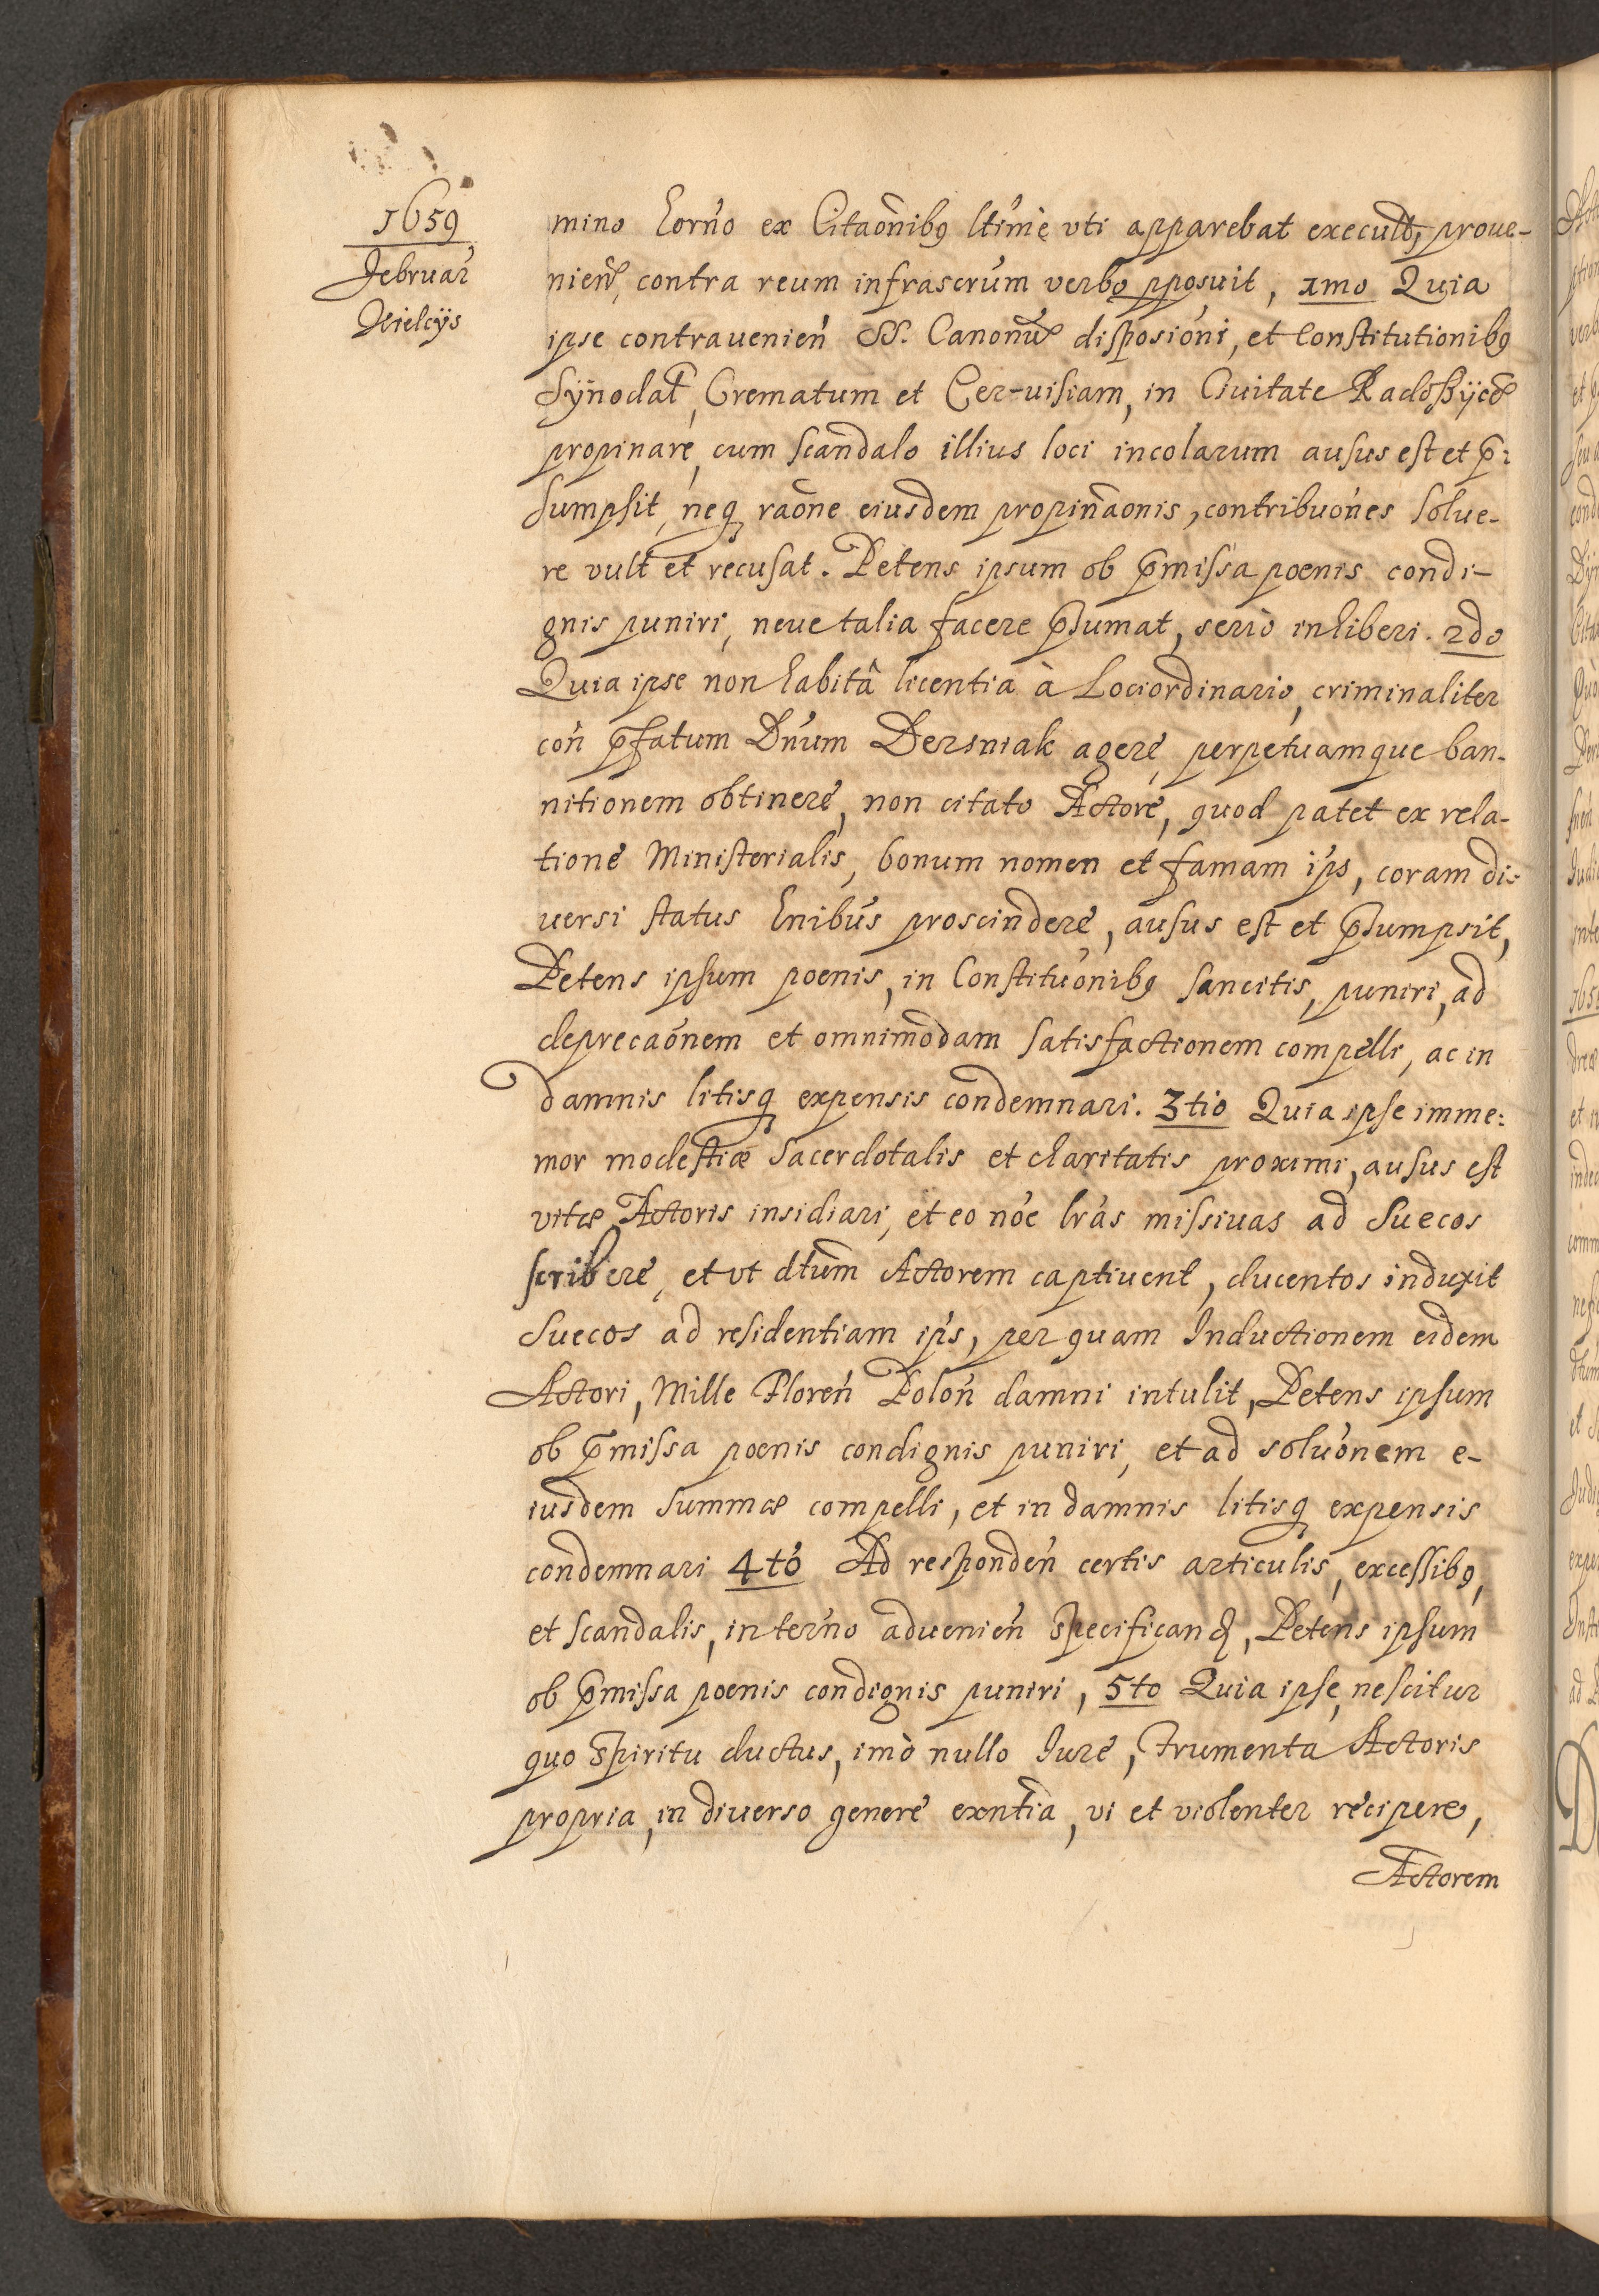 1659
Februar
Kielcijs
mino horńo ex Citaõnibꝫ ltimè vti apparebat execut, proue-
nień, contra reum infrascrum verbo pposuit, 1mo Quia
ipse contrauenień SS. Canonu disposioni, et Constitutionibꝫ
Synodal, Crematum et Cer-uisiam, in Ciuitate Radoszycen
propinare, cum scandalo illius loci incolarum ausus est et p̃-
sumpsit, neqꝫ raõne eiusdem propinãonis, contribuões solue-
re vult et recusat. Petens ipsum ob p̃missa poenis condi-
gnis puniri, neue talia facere p̃sumat, seriò inhiberi. 2do
Quia ipse non habitâ licentia à Lociordinario, criminaliter
coń p̃fatum Dńum Dersniak agere, perpetuamque ban-
nitionem obtinere, non citato Actore, quod patet ex rela-
tione Ministerialis, bonum nomen et famam ips, coram di-
uersi status hnibus proscindere, ausus est et p̃sumpsit,
Petens ipsum poenis, in Constituónibꝫ sancitis, puniri, ad
deprecaónem et omnimodam satisfactionem compelli, ac in
damnis litisqꝫ expensis condemnari. 3tio Quia ipse imme-
mor modestiæ Sacerdotalis et charitatis proximi, ausus est
vitæ Actoris insidiari, et eo nóe lrás missiuas ad Suecos
scribere, et vt dtum Actorem captiuent, ducentos induxit
Suecos ad residentiam ips, per quam Inductionem eidem
Actori, Mille Floreń Poloń damni intulit, Petens ipsum
ob p̃missa poenis condignis puniri, et ad soluónem e-
iusdem summæ compelli, et in damnis litisqꝫ expensis
condemnari 4tò Ad respondeń certis articulis, excessibꝫ,
et scandalis, in terńo aduenień specificand, Petens ipsum
ob p̃missa poenis condignis puniri, 5to Quia ipse, nescitur
quo spiritu ductus, imò nullo Iure, Frumenta Actoris
propria, in diuerso genere exntia, vi et violenter recipere,
Actorem